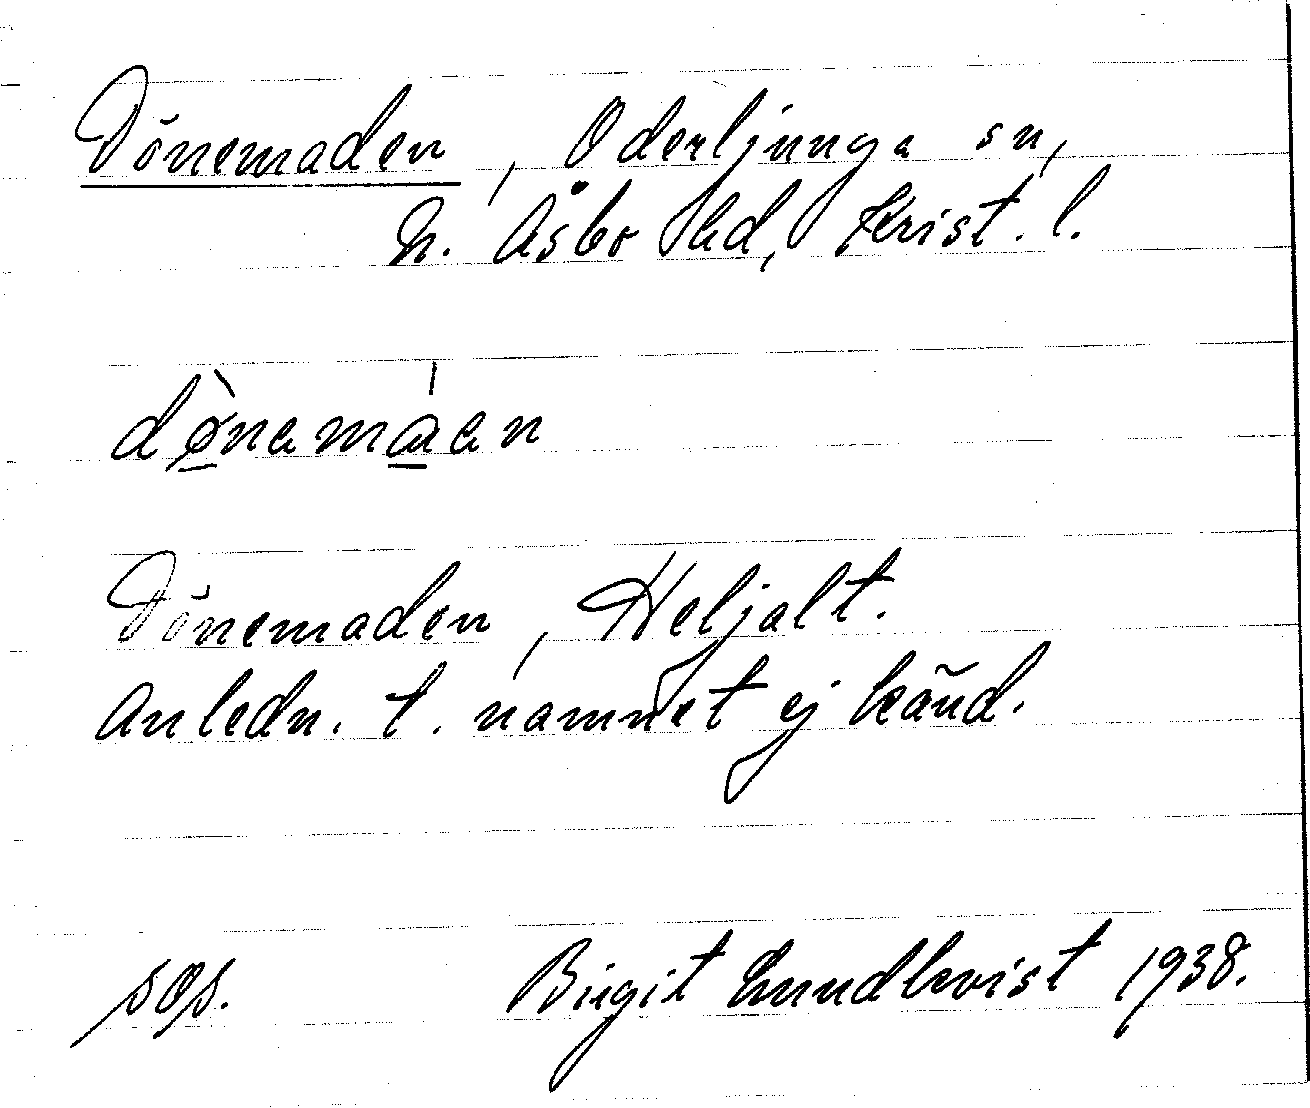 Dönemaden, Oderljunga sn,
N. Åsbo hd, Krist. l.
dø̀nemáen
Dönemaden, Heljalt.
Anledn. t. namnet ej känd.
sep. Birgit Lundkvist 1938.